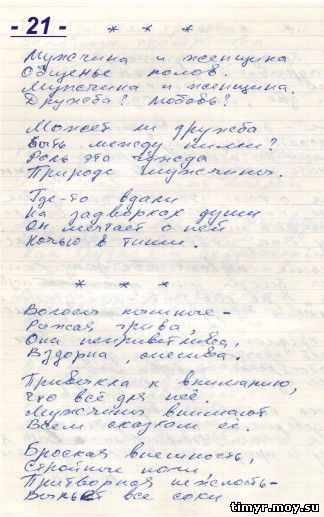 - 21 -
* * *
Мужчина и женщина
Общенье полов.
Мужчина и женщина.
Дружба? Любовь?
Может ли дружба
Быть между ними?
Роль эта чужда
Природе мужчины.
Где-то вдали
На задворках души
Он мечтает о ней
Ночью в тиши.
* * *
Волосы пышные -
Рыжая грива,
Она неприветлива,
Вздорна, спесива.
Привыкла к вниманию,
Что всё для неё.
Мужчины внимают
Всем сказкам её.
Броская внешность,
Стройные ноги,
Притворная нежность -
все соки
timyr.moy.su